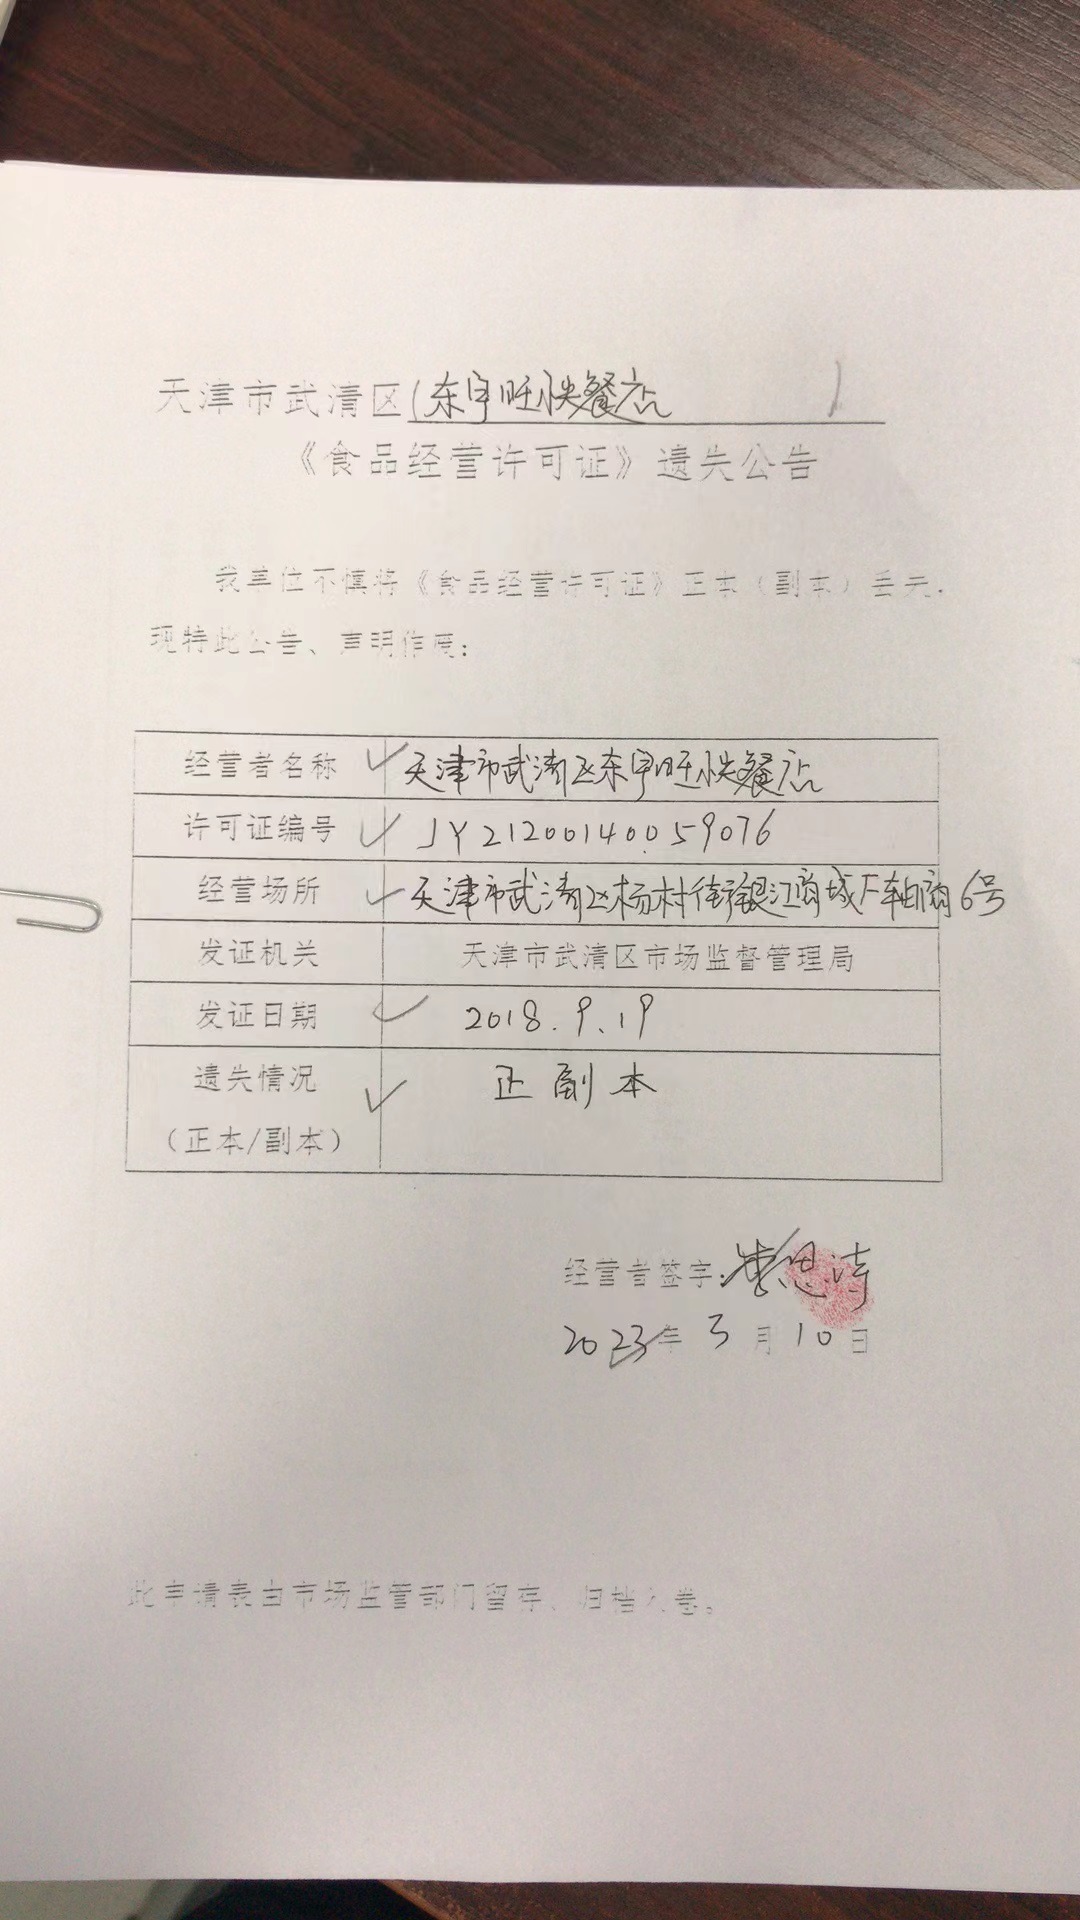 天津市武清区(东宇旺快餐店)
《食品经营许可证》遗失公告
我单位不慎将《食品经营许可证》正本(副本)丢失,
现特此公告、声明作废:
经营者名称 天津市武清区东宇旺快餐店
许可证编号 JY21200140059076
经营场所 天津市武清区杨村街银江商城 商6号
发证机关 天津市武清区市场监督管理局
发证日期 2018.9.19
遗失情况 正副本
(正本/副本)
经营者签字: 思
2023年3月10日
此申请表由市场监管部门留存、归档入卷。